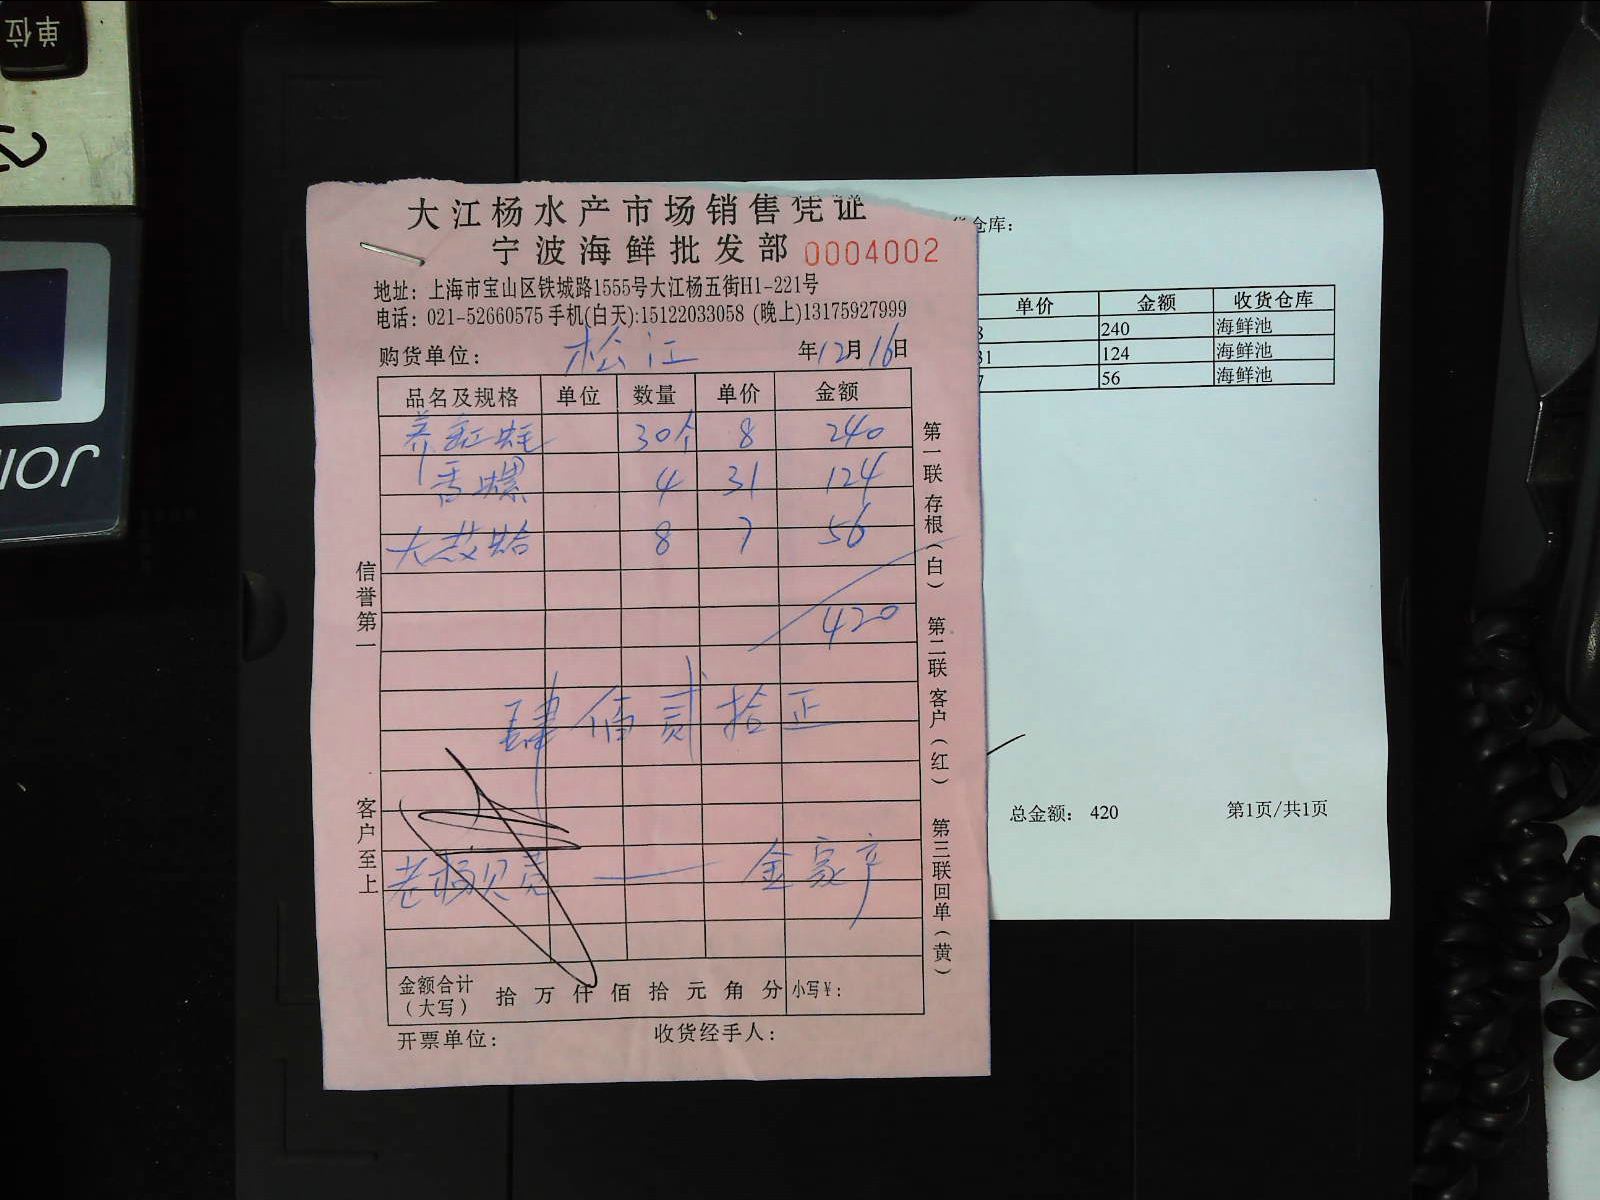 单位
大江杨水产市场销售凭证
宁波海鲜批发部 0004002
地址：上海市宝山区铁城路1555号大江杨五街H1-221号
电话：021-52660575 手机(白天):15122033058 (晚上)13175927999
购货单位： 松江 年12月16日
品名及规格 单位 数量 单价 金额
30个 8 240
香螺 4 31 124
大 蛤 8 7 56
420
肆佰贰拾正
老杨贝壳 — 金家产
金额合计（大写） 拾 万 仟 佰 拾 元 角 分 小写¥：
开票单位： 收货经手人：
信誉第一
客户至上
第一联存根（白）
第二联客户（红）
第三联回单（黄）
仓库：
单价 金额 收货仓库
8 240 海鲜池
31 124 海鲜池
7 56 海鲜池
总金额： 420 第1页/共1页